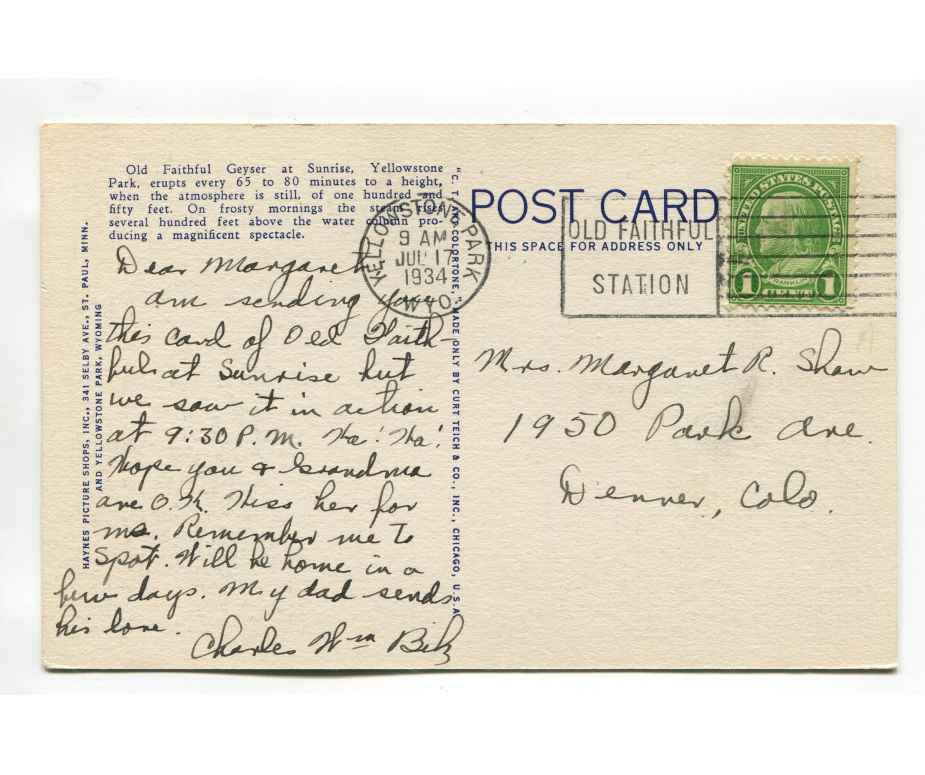 Old Faithful Geyser at Sunrise, Yellowstone
Park, erupts every 65 to 80 minutes to a height,
when the atmosphere is still, of one hundred and
fifty feet. On frosty mornings the steam rises
several hundred feet above the water column pro-
ducing a magnificent spectacle.
HAYNES PICTURE SHOPS, INC., 341 SELBY AVE., ST. PAUL, MINN.
AND YELLOWSTONE PARK, WYOMING
Dear Margaret
am sending you
this card of Old Faith-
ful at Sunrise but
we saw it in action
at 9:30 P.M. Ha! Ha!
Hope you & Grandma
are O.K. Kiss her for
me. Remember me to
Spot. Will be home in a
few days. My dad sends
his love.
Charles Wm
"C. T. ART COLORTONE," MADE ONLY BY CURT TEICH & CO., INC., CHICAGO, U.S.A.
POST CARD
THIS SPACE FOR ADDRESS ONLY
YELLOWSTONE PARK
9 AM
JUL 17
1934
WYO.
OLD FAITHFUL
STATION
UNITED STATES POSTAGE
1 1
Mrs. Margaret R. Shaw
1950 Park Ave.
Denver, Colo.